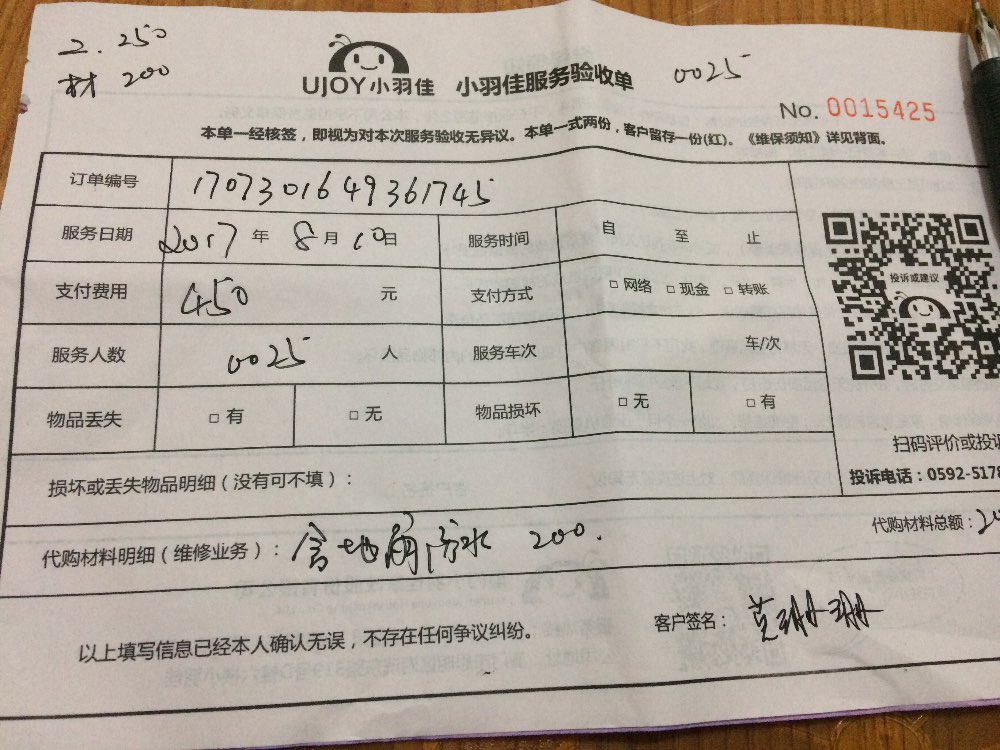 工.250
材 200
UJOY小羽佳 小羽佳服务验收单 0025
No. 0015425
本单一经核签，即视为对本次服务验收无异议。本单一式两份，客户留存一份(红)。《维保须知》详见背面。
订单编号 1707301649361745
服务日期 2017 年 8 月 10 日 服务时间 自 至 止
支付费用 450 元 支付方式 □ 网络 □ 现金 □ 转账
投诉或建议
服务人数 0025 人 服务车次 车/次
物品丢失 □ 有 □ 无 物品损坏 □ 无 □ 有
扫码评价或投诉
损坏或丢失物品明细（没有可不填）：
投诉电话：0592-5178
代购材料明细（维修业务）： 防水 200.
代购材料总额：2
以上填写信息已经本人确认无误，不存在任何争议纠纷。
客户签名： 范珊珊